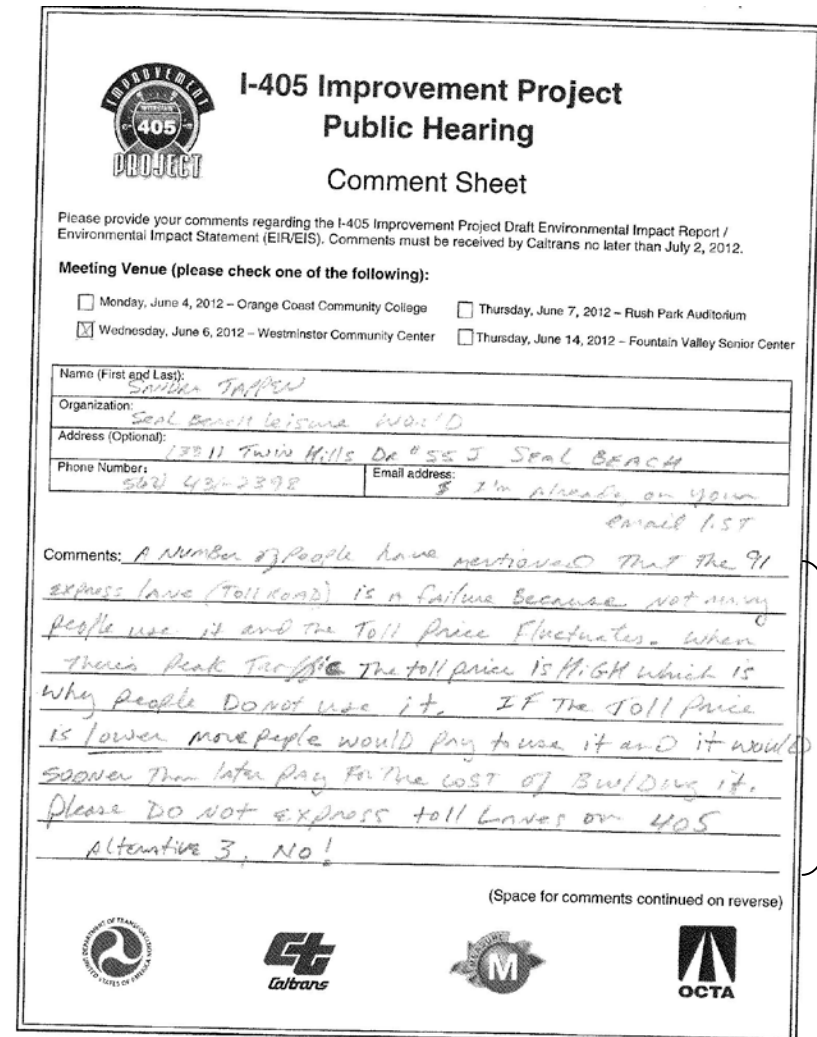 IMPROVEMENT
INTERSTATE
405
PROJECT
I-405 Improvement Project
Public Hearing
Comment Sheet
Please provide your comments regarding the I-405 Improvement Project Draft Environmental Impact Report /
Environmental Impact Statement (EIR/EIS). Comments must be received by Caltrans no later than July 2, 2012.
Meeting Venue (please check one of the following):
Monday, June 4, 2012 – Orange Coast Community College
Thursday, June 7, 2012 – Rush Park Auditorium
Wednesday, June 6, 2012 – Westminster Community Center
Thursday, June 14, 2012 – Fountain Valley Senior Center
Name (First and Last):
SANDRA TAPPEN
Organization:
Seal Beach Leisure World
Address (Optional):
13311 Twin Hills DR # 55 J SEAL BEACH
Phone Number:
562) 431-2398
Email address:
I'm already on your
email list
Comments: A Number of People have mentioned That the 91
express lane (Toll Road) is a failure Because not many
people use it and the Toll Price Fluctuates. When
There's Peak Traffic The toll price is HiGH which is
why people Do not use it. IF The Toll Price
is lower more peple would pay to use it and it would
sooner Than later pay For the cost of Building it.
Please DO NOT express toll Lanes on 405
Alternative 3, NO!
(Space for comments continued on reverse)
DEPARTMENT OF TRANSPORTATION
UNITED STATES OF AMERICA
Caltrans
MEASURE
M
OCTA